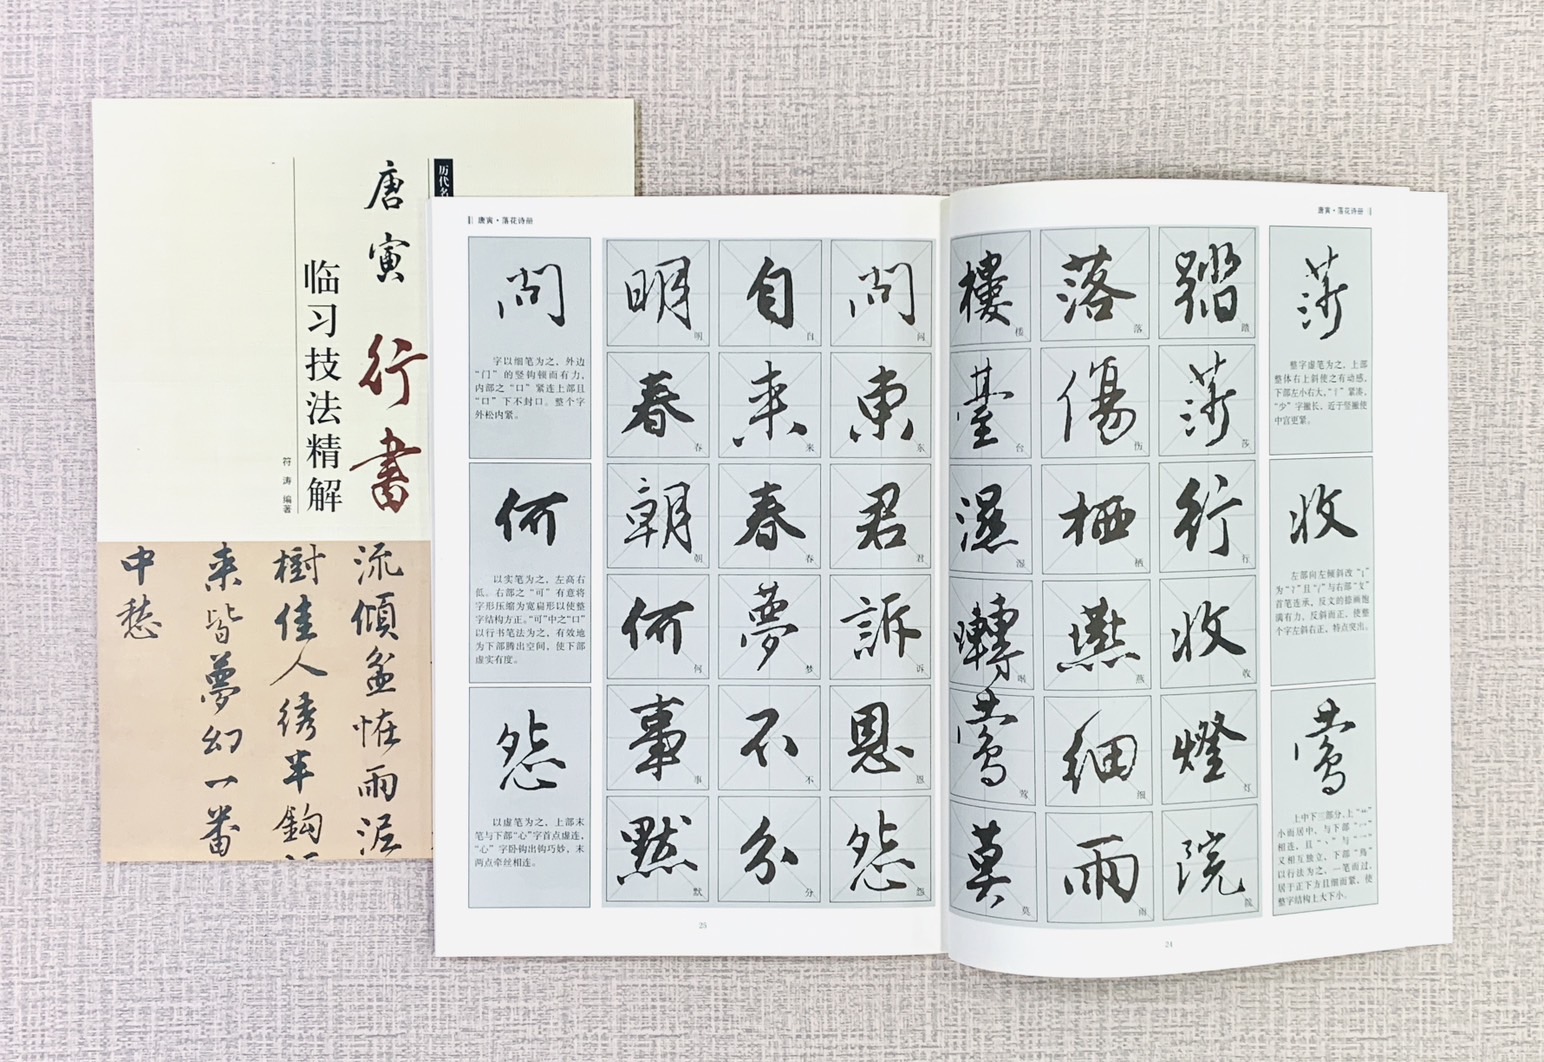 历代名
唐寅
行書
临习技法精解
符涛 编著
流傾盆恠雨泥
樹佳人綉半鈎
来皆夢幻一番
中愁
唐寅·落花诗册
莎
整字虚笔为之，上部
整体右上斜使之有动感，
下部左小右大，“氵”紧凑，
“少”字撇长，近于竖撇使
中宫更紧。
收
左部向左倾斜改“丨”
为“丿”且“丿”与右部“攵”
首笔连承，反文的捺画饱
满有力，反斜而正，使整
个字左斜右正，特点突出。
莺
居于正下方且细而紧，使
整字结构上大下小。
踏莎行收燈院
踏莎行收灯院
落傷栖燕細雨
落伤栖燕细雨
樓臺濕囀鶯莫
楼台湿啭莺莫
24
唐寅·落花诗册
問東君訴恩怨
问东君诉恩怨
自来春夢不分
自来春梦不分
明春朝何事默
明春朝何事默
問
字以细笔为之，外边
“门”的竖钩顿而有力，
内部之“口”紧连上部且
“口”下不封口。整个字
外松内紧。
何
以实笔为之，左高右
低。右部之“可”有意将
字形压缩为宽扁形以使整
字结构方正。“可”中之“口”
以行书笔法为之，有效地
为下部腾出空间，使下部
虚实有度。
怨
以虚笔为之，上部末
笔与下部“心”字首点虚连，
“心”字卧钩出钩巧妙，末
两点牵丝相连。
23